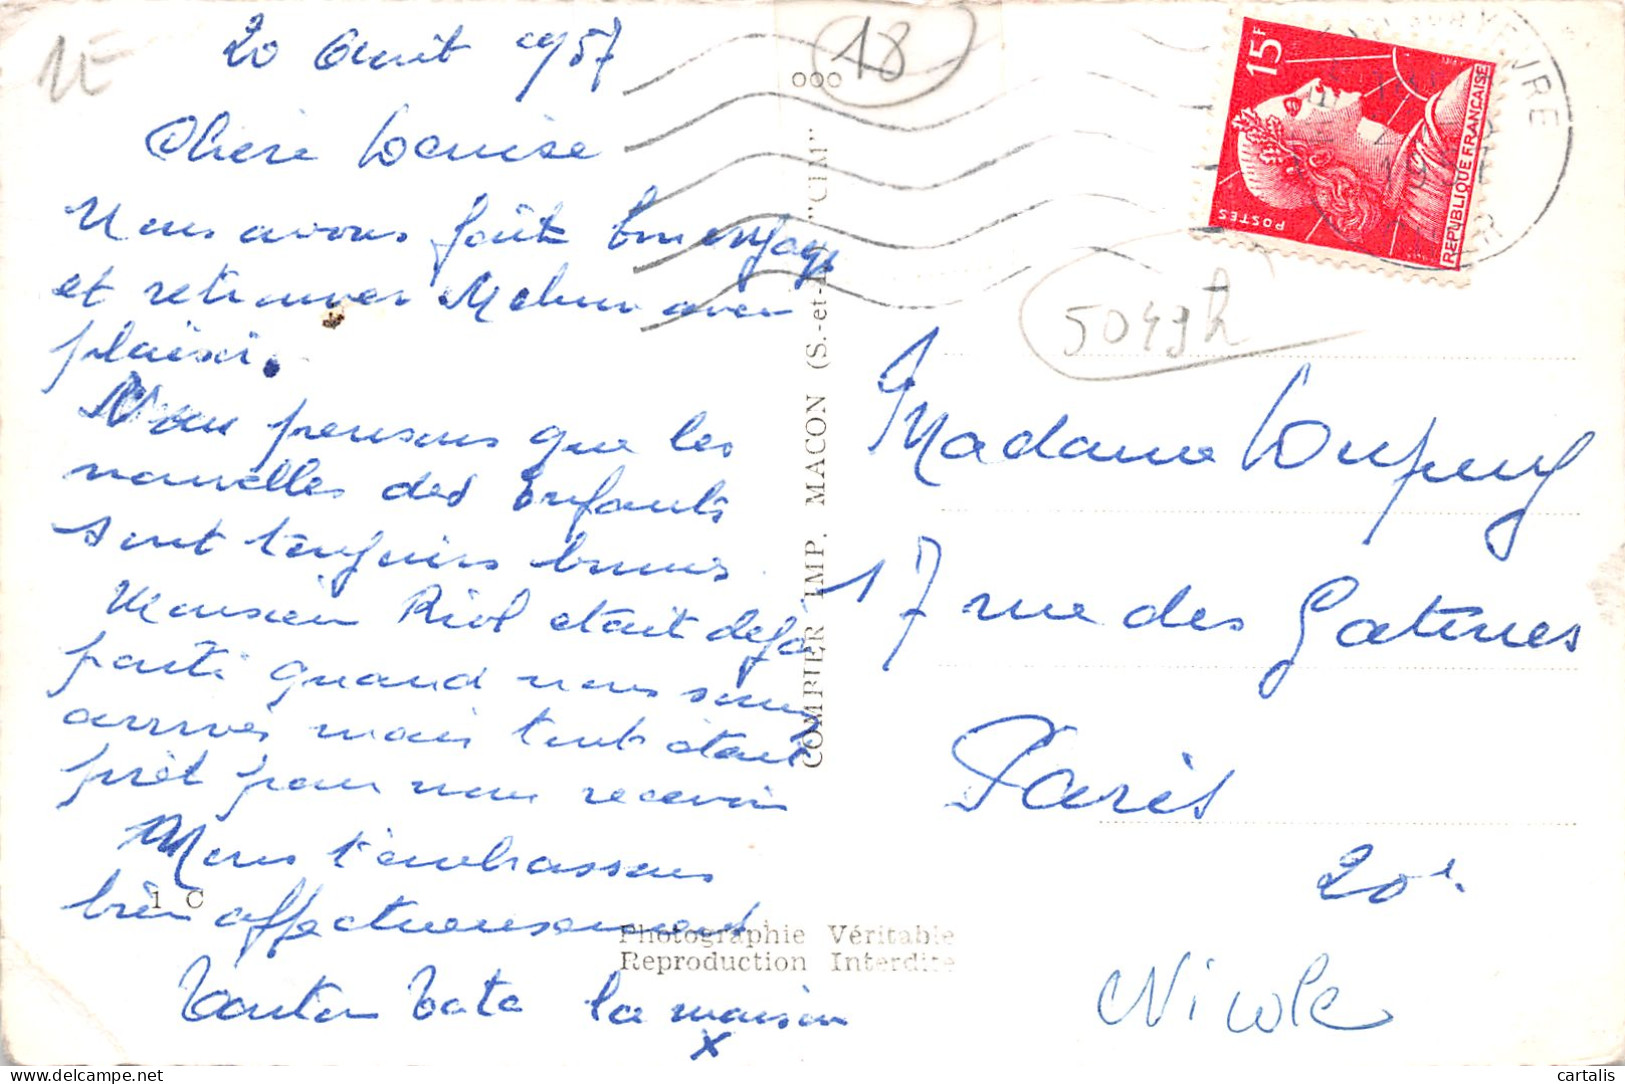 1E
20 Août 1957
18
Chère Louise
Nous avons fait bon voyage
et retrouver Mehun avec
plaisir.
Nous pensons que les
nouvelles des Enfants
sont toujours bonnes.
Monsieur Riol etait deja
parti quand nous sommes
arrivés mais tout étant
prêt pour nous recevoir
Nous t'embrassons
bien affectueusement
Tonton Tata la maison
x
1 C
ooo
COMBIER IMP. MACON (S.-et-L.) "CIM"
Photographie Véritable
Reproduction Interdite
15F
POSTES
REPUBLIQUE FRANÇAISE
YEVRE
1957
CHER
5049h
Madame Dupuy
17 rue des Gatines
Paris
20e
Nicole
cartalis